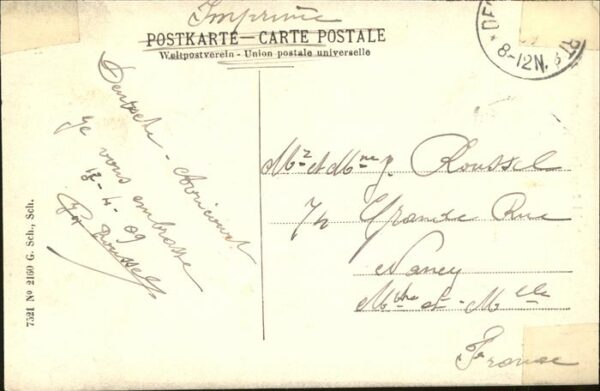 Imprimé
POSTKARTE—CARTE POSTALE
Weltpostverein - Union postale universelle
8-12N.
Deutsch - Avricourt
Je vous embrasse
13-4-09
Roussel
Mr et Mme J. Roussel
74 Grande Rue
Nancy
Mthe et - Mlle
France
7521 No 2160 G. Sch., Sch.